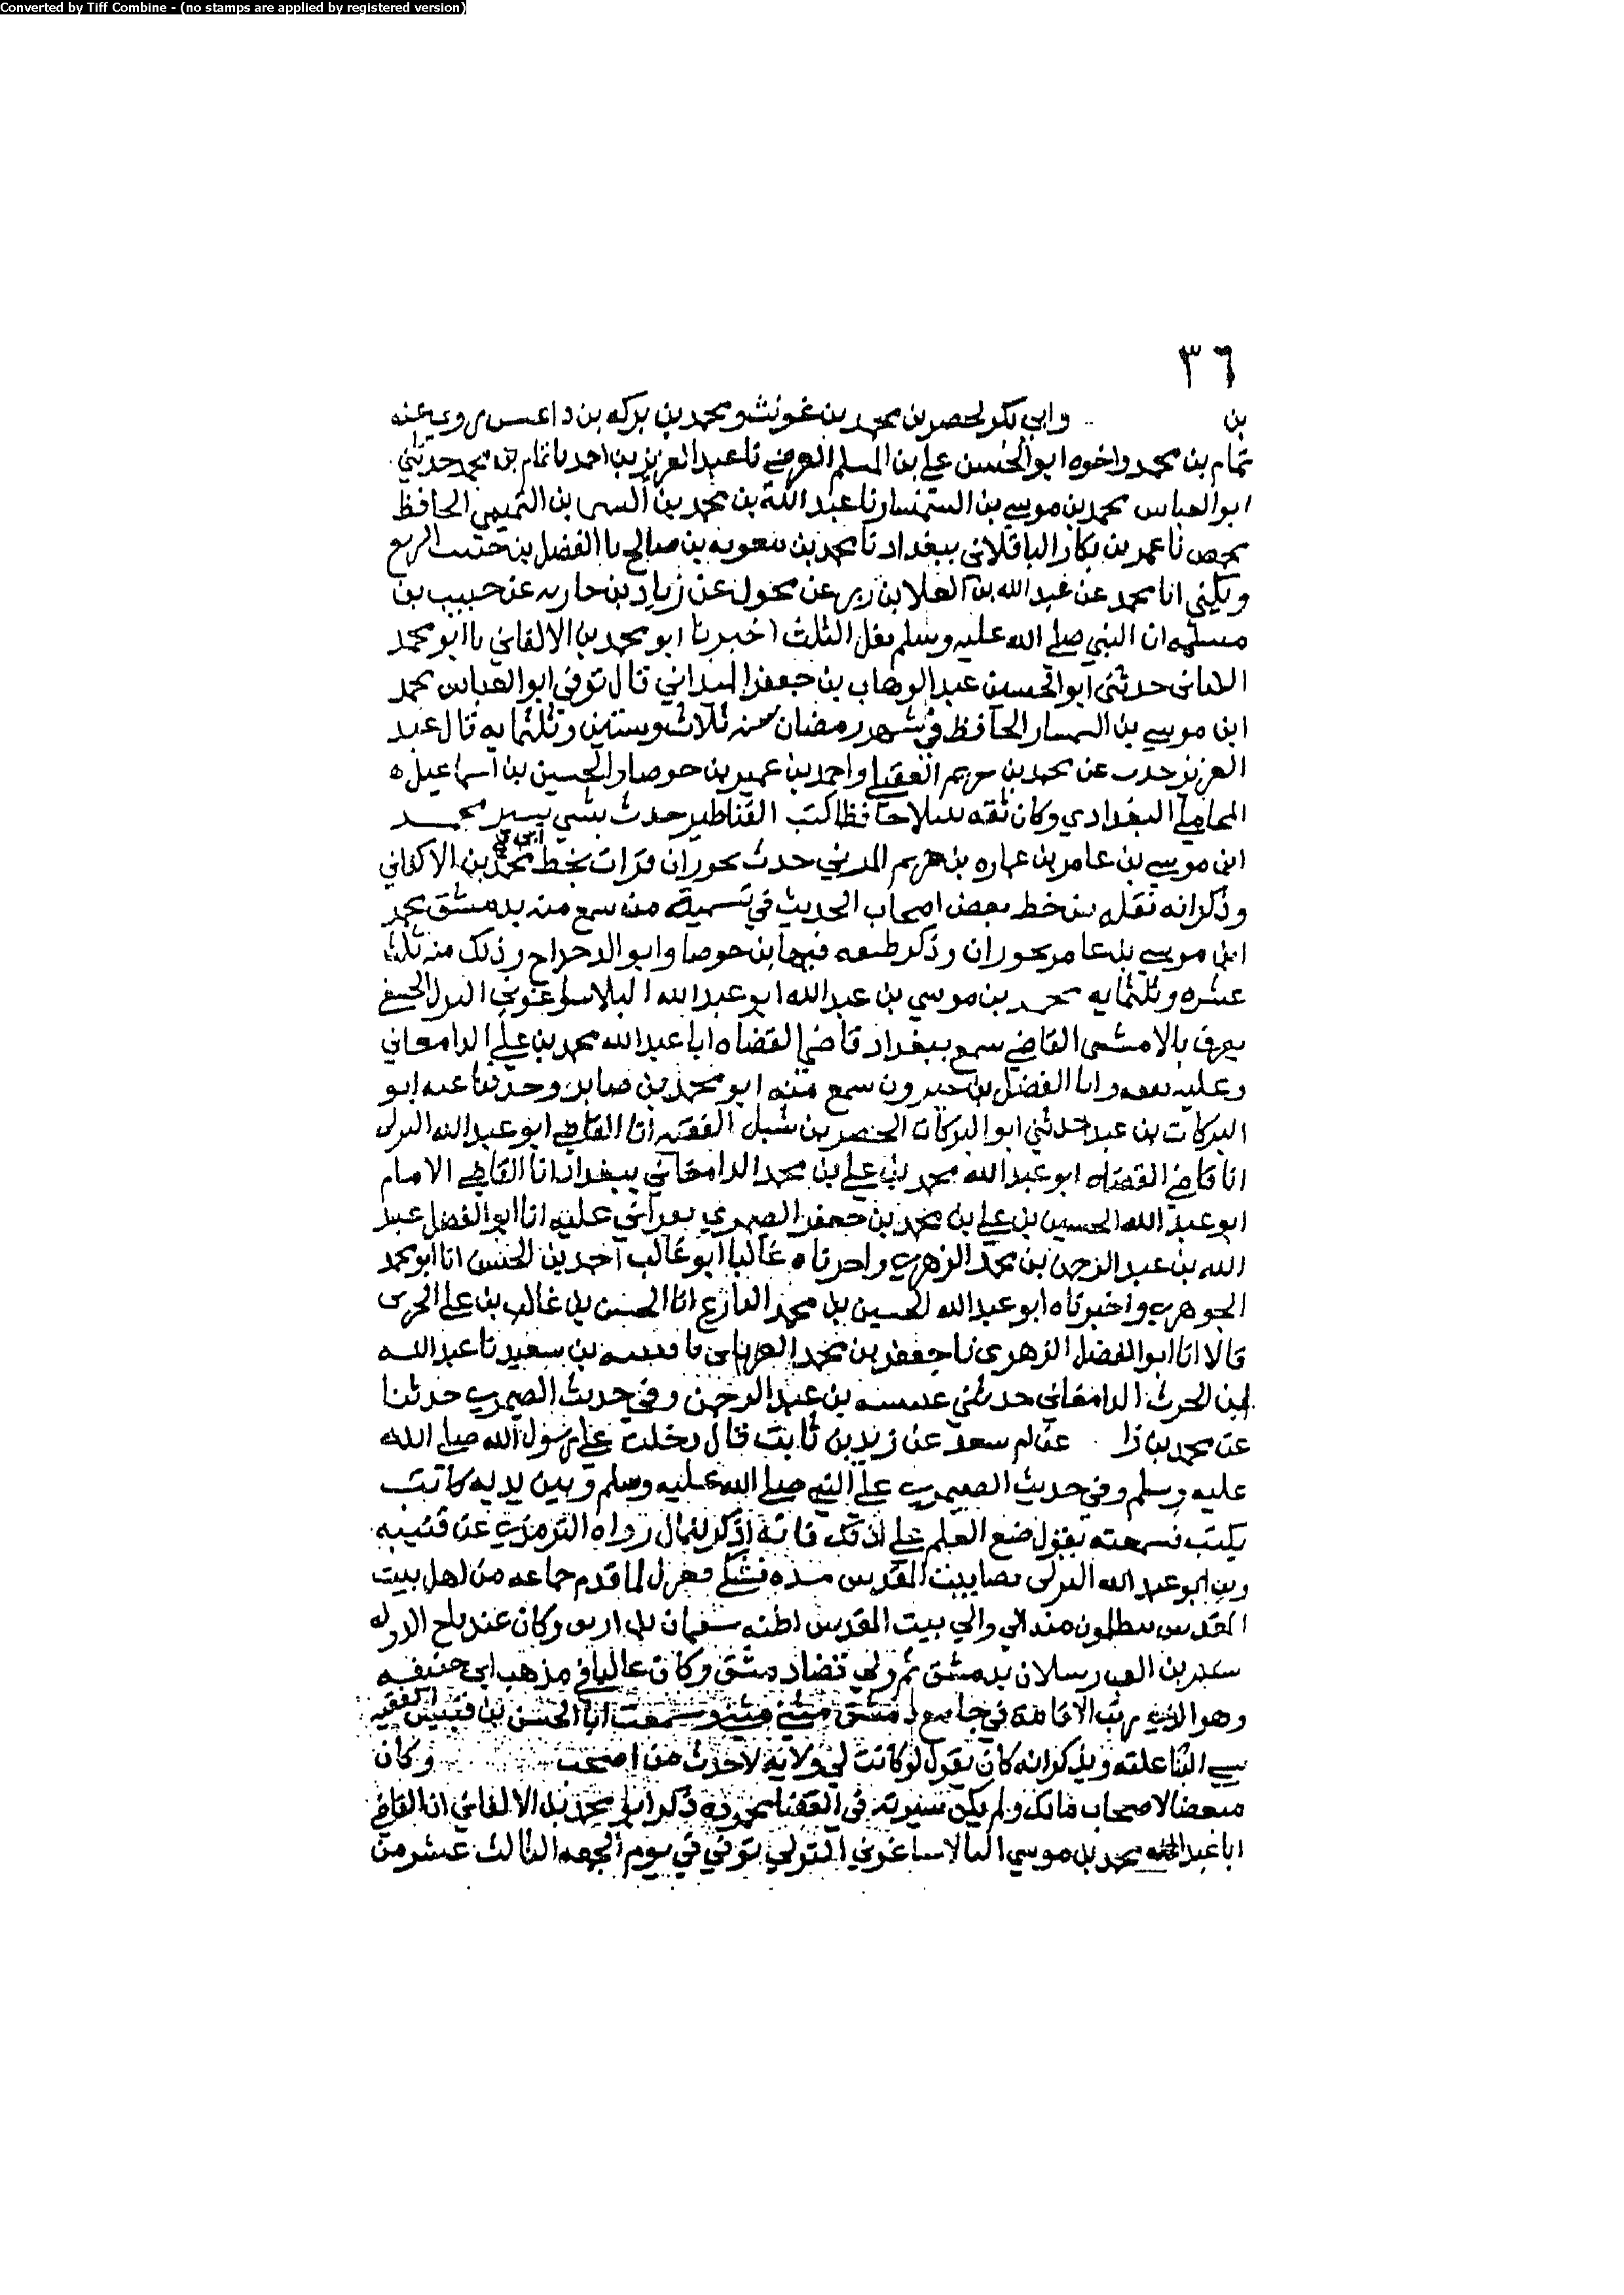 Converted by Tiff Combine - (no stamps are applied by registered version)
٣٦
بن وابي بكر بن محمد بن ومحمد بن بركه بن داعس روي عنه
تمام بن محمد واخوه ابو الحسن علي بن المسلم نا عبد العزيز بن احمد نا تمام بن محمد حدثني
ابو العباس محمد بن موسي بن السمسار نا عبد الله بن محمد بن السري بن التميمي الحافظ
بحمص نا عمر بن بكار الباقلاني ببغداد نا محمد بن معويه بن صالح نا الفضل بن الربيع
ويكني انا محمد عن عبد الله بن العلا بن زبر عن مكحول عن زياد بن جاريه عن حبيب بن
مسلمه ان النبي صلي الله عليه وسلم نفل الثلث اخبرنا ابو محمد بن الالفاني نا ابو محمد
حدثني ابو الحسين عبد الوهاب بن جعفر الميداني قال توفي ابو العباس محمد
ابن موسي بن السمسار الحافظ في شهر رمضان سنه ثلاث وستين وثلثمايه قال عبد
العزيز حدث عن محمد بن خريم العقيلي واحمد بن عمير بن جوصا والحسين بن اسماعيل
المحاملي البغدادي وكان ثقه نبيلا حافظا كتب القناطير حدث بشي يسير محمد
ابن موسي بن عامر بن عماره بن خريم المري حدث بحوران قرات بخط ابي محمد بن الاكفاني
وذكر انه نقله من خط بعض اصحاب الحديث في تسمية من سمع منه بدمشق محمد
ابن موسي بن عامر بحوران وذكر فيها بن جوصا وابو الدحداح وذلك
عشره وثلثمايه محمد بن موسي بن عبد الله ابو عبد الله التركي الحنفي
يعرف القاضي سمع ببغداد قاضي القضاه ابا عبد الله محمد بن علي الدامغاني
وعليه تفقه وابا الفضل بن خيرون سمع منه ابو محمد بن صابر وحدثنا عنه ابو
البركات بن عبد حدثني ابو البركات الخضر بن شبل الفقيه انا القاضي ابو عبد الله التركي
انا قاضي القضاه ابو عبد الله محمد بن علي بن محمد الدامغاني ببغداد انا القاضي الامام
ابو عبد الله الحسين بن علي بن محمد بن جعفر الصيمري بقراتي عليه انا ابو الفضل عبد
الله بن عبد الرحمن بن محمد الزهري واخبرناه عاليا ابو غالب احمد بن الحسن انا ابو محمد
الجوهري واخبرناه ابو عبد الله الحسين بن محمد البارع انا الحسن بن غالب بن علي الحربي
قالا انا ابو الفضل الزهري نا جعفر بن محمد الفريابي نا قتيبه بن سعيد نا عبد الله
ابن الحرث الدامغاني حدثني عنبسه بن عبد الرحمن وفي حديث الصيمري حدثنا
عن محمد بن زا عن ام سعد عن زيد بن ثابت قال دخلت علي رسول الله صلي الله
عليه وسلم وفي حديث الصيمري علي النبي صلي الله عليه وسلم وبين يديه كاتب
يكتب فسمعته يقول ضع العلم علي اذنك فانه اذكر رواه الترمذي عن قتيبه
ابو عبد الله التركي قضا بيت المقدس مده فشكي فعزل لما قدم جماعه من اهل بيت
المقدس يطلبون والي بيت المقدس سقمان بن ارتق وكان عند تاج الدوله
بن الب ارسلان بدمشق ثم ولي قضا دمشق وكان غاليا في مذهب ابي حنيفه
وهو الذي رتب الاقامة في جامع دمشق مثني مثني وسمعت ابا الحسن بن قبيس الفقيه
يسي الثنا عليه ويذكر انه كان يقول لو كانت لي ولاية لاخذت من اصحاب وكان
مبغضا لاصحاب مالك ولم يكن سيرته في القضا محموده ذكر ابو محمد بن الالفاني ان القاضي
ابا عبد الله محمد بن موسي التركي توفي في يوم الجمعه الثالث عشر من